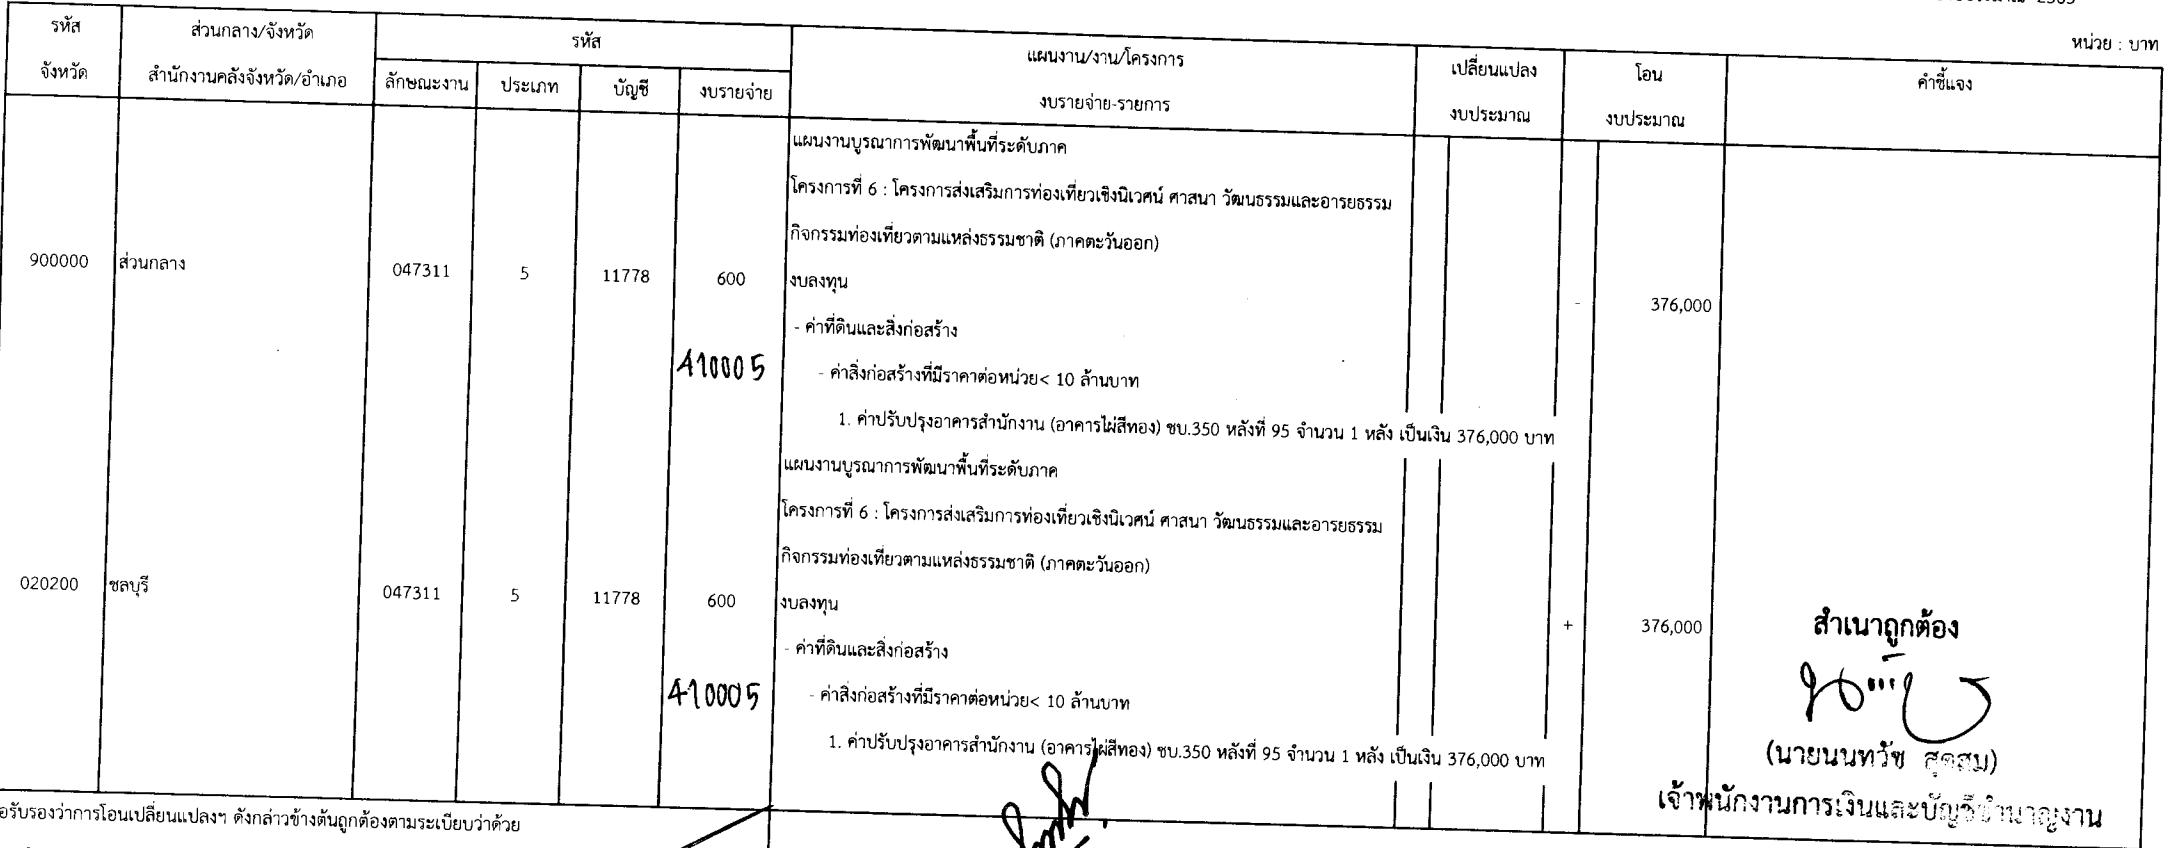 หน่วย : บาท
รหัส
จังหวัด
ส่วนกลาง/จังหวัด
สำนักงานคลังจังหวัด/อำเภอ
รหัส
ลักษณะงาน ประเภท บัญชี งบรายจ่าย
แผนงาน/งาน/โครงการ
งบรายจ่าย-รายการ
เปลี่ยนแปลง
งบประมาณ
โอน
งบประมาณ
คำชี้แจง
แผนงานบูรณาการพัฒนาพื้นที่ระดับภาค
โครงการที่ 6 : โครงการส่งเสริมการท่องเที่ยวเชิงนิเวศน์ ศาสนา วัฒนธรรมและอารยธรรม
กิจกรรมท่องเที่ยวตามแหล่งธรรมชาติ (ภาคตะวันออก)
900000 ส่วนกลาง 047311 5 11778 600 งบลงทุน - 376,000
- ค่าที่ดินและสิ่งก่อสร้าง
410005 - ค่าสิ่งก่อสร้างที่มีราคาต่อหน่วย< 10 ล้านบาท
1. ค่าปรับปรุงอาคารสำนักงาน (อาคารไผ่สีทอง) ชบ.350 หลังที่ 95 จำนวน 1 หลัง เป็นเงิน 376,000 บาท
แผนงานบูรณาการพัฒนาพื้นที่ระดับภาค
โครงการที่ 6 : โครงการส่งเสริมการท่องเที่ยวเชิงนิเวศน์ ศาสนา วัฒนธรรมและอารยธรรม
กิจกรรมท่องเที่ยวตามแหล่งธรรมชาติ (ภาคตะวันออก)
020200 ชลบุรี 047311 5 11778 600 งบลงทุน + 376,000
- ค่าที่ดินและสิ่งก่อสร้าง
410005 - ค่าสิ่งก่อสร้างที่มีราคาต่อหน่วย< 10 ล้านบาท
1. ค่าปรับปรุงอาคารสำนักงาน (อาคารไผ่สีทอง) ชบ.350 หลังที่ 95 จำนวน 1 หลัง เป็นเงิน 376,000 บาท
สำเนาถูกต้อง
(นายนนทวัช สุดสม)
เจ้าพนักงานการเงินและบัญชีชำนาญงาน
อรับรองว่าการโอนเปลี่ยนแปลงฯ ดังกล่าวข้างต้นถูกต้องตามระเบียบว่าด้วย